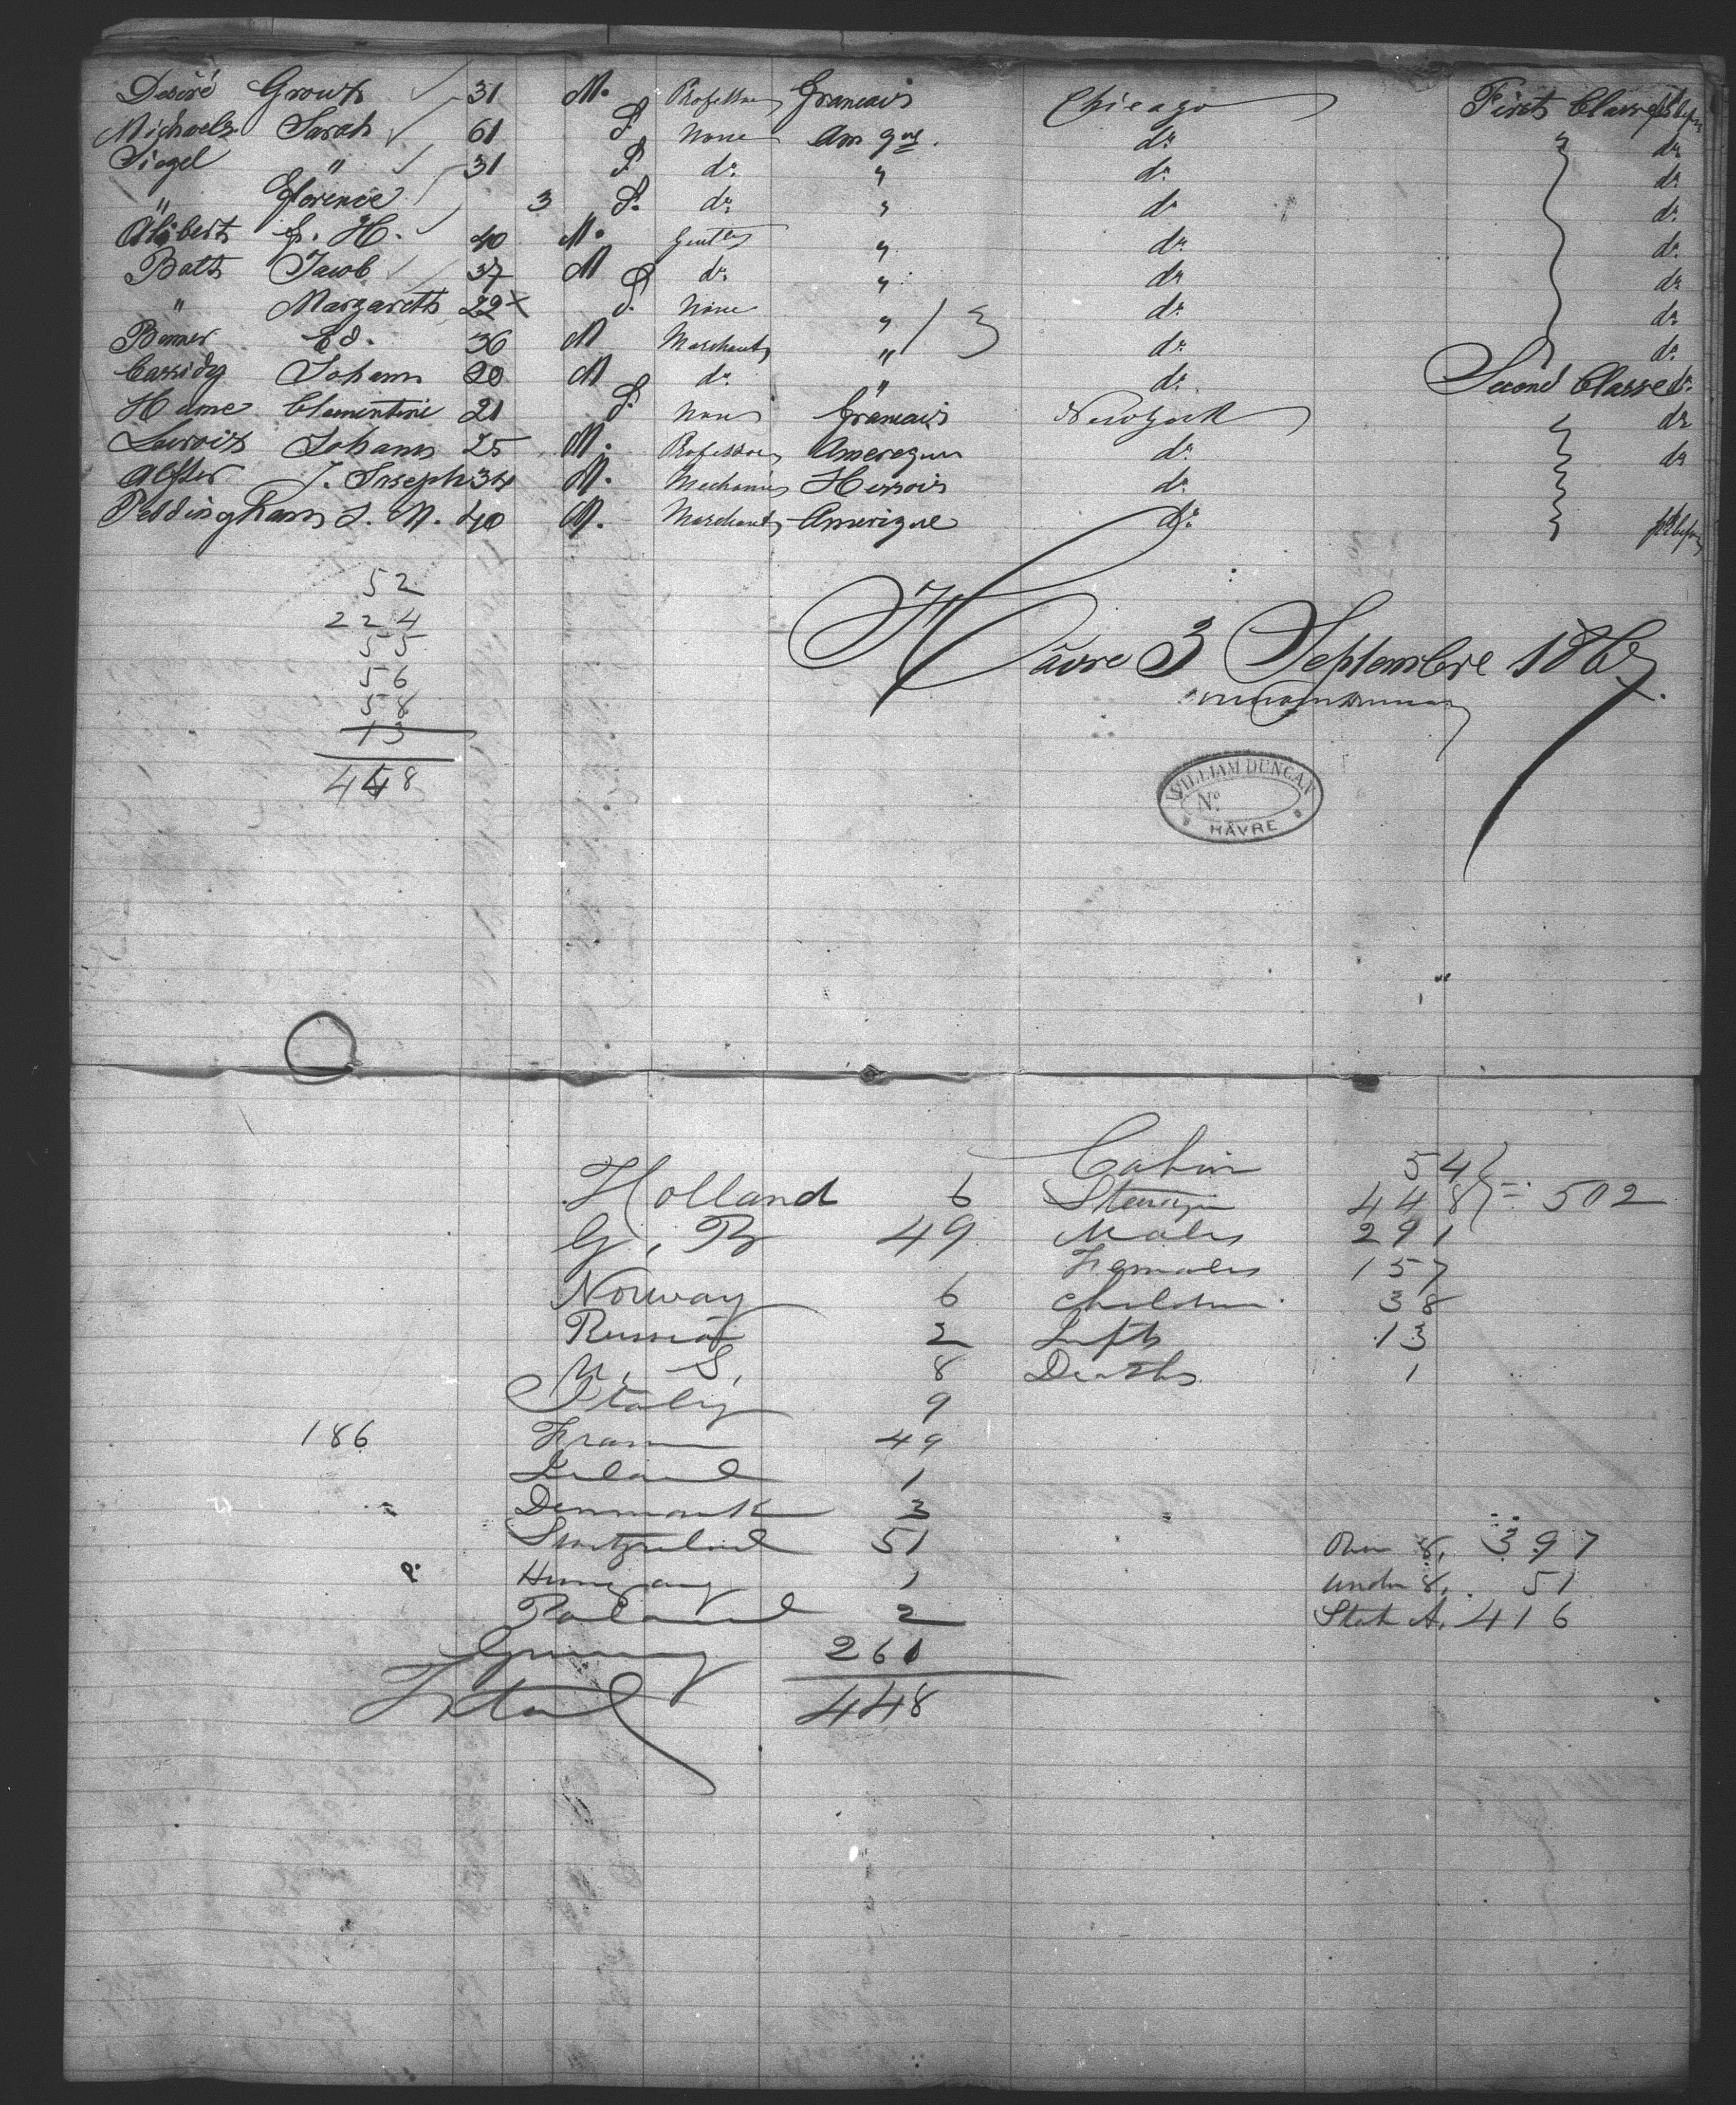 Desiré Grout 31 M. Professeur Francais Chicago First Classe
Michaels Sarah 61 F. None Am que. do do
Siegel " 31 F. do " do do
" Florence 3 F. do " do do
Alibert F. H. 40 M. Gentln " do do
Bath Jacob 37 M do " do do
" Margareth 29 F. None " 3 do do
Bomer Ed. 36 M Marchant " do do
Cassidy Johann 20 M do " do Second Classe do
Hume Clementine 21 F. None Francais New York do
Lacroix Johann 25 M. Professor Amerequn do do
Alfter J. Joseph 34 M. Mechanic Hessois do
Peddingham S. N. 40 M. Marchant Amerique do
52
224
55
56
58
13
448
Hâvre 3 Septembre 1867
WILLIAM DUNCAN
No.
HÂVRE
Cabin 54
Holland 6 Steerage 448 = 502
G. B 49 Males 291
Females 157
Norway 6 Children 38
Russia 2 Infts 13
U. S. 8 Deaths 1
Italy 9
186 France 49
Ireland 1
Denmark 3
Switzerland 51 Over 8, 397
Hungary 1 Under 8, 51
Poland 2 State A, 416
Germany 261
Total 448